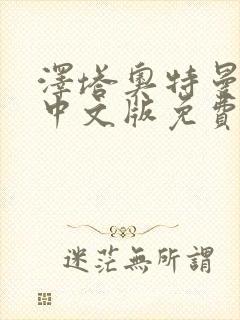 澤塔奧特曼
中文版免費
迷茫無所謂